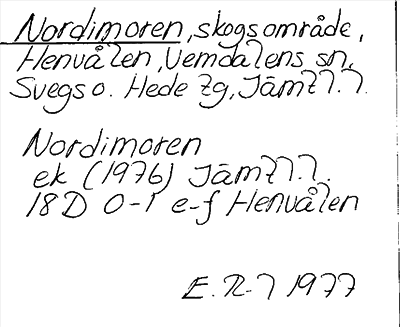 Nordimoren, skogsområde,
Henvålen, Vemdalens sn,
Svegs o. Hede tg, Jämtl. l.
Nordimoren
ek (1976) Jämtl. l.
18D 0-1 e-f Henvålen
E. R-l 1977